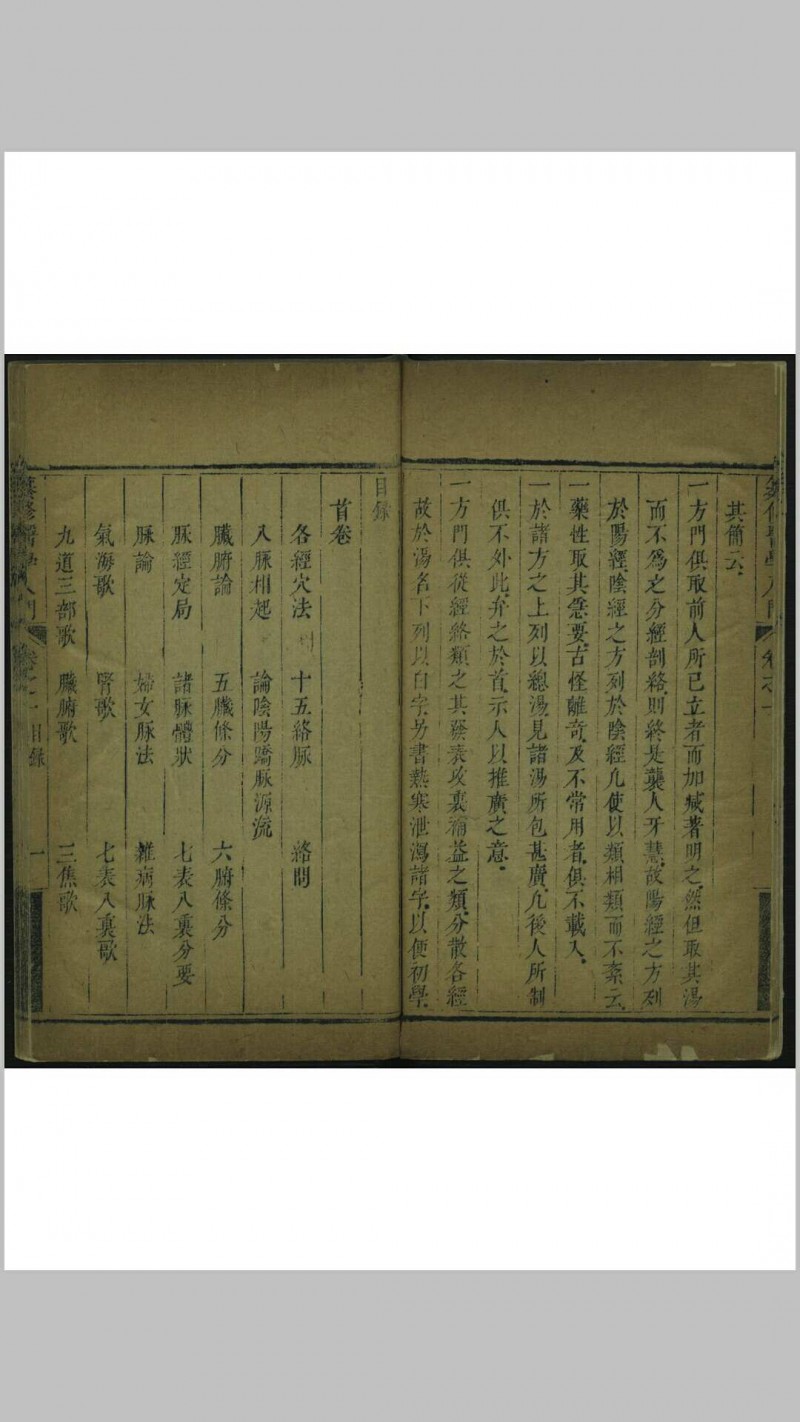 其簡云
一方門俱取前人所已立者而加減著明之然但取其湯
而不爲之分經剖絡則終是襲人牙慧故陽經之方列
於陽經陰經之方列於陰經凢使以類相類而不紊云
一藥性取其急要古怪離奇及不常用者俱不載入
一於諸方之上列以總湯見諸湯所包甚廣凢後人所制
俱不外此弁之於首示人以推廣之意
一方門俱從經絡類之其發表攻裏補益之類分散各經
故於湯名下列以白字另書熱寒泄瀉諸字以便初學
目錄
首卷
各經穴法 十五絡脉 絡問
八脉相起 論陰陽蹻脉源流
臟腑論 五臟條分 六腑條分
脉經定局 諸脉體狀 七表八裏分要
脉論 婦女脉法 雜病脉法
氣海歌 腎歌 七表八裏歌
九道三部歌 臟腑歌 三焦歌
目錄 一